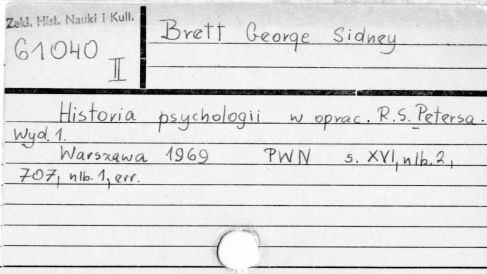 Zakł. Hist. Nauki i Kult.
61040
II
Brett George Sidney
Historia psychologii w oprac. R.S. Petersa.
Wyd. 1.
Warszawa 1969 PWN s. XVI, nlb. 2,
707, nlb. 1, err.